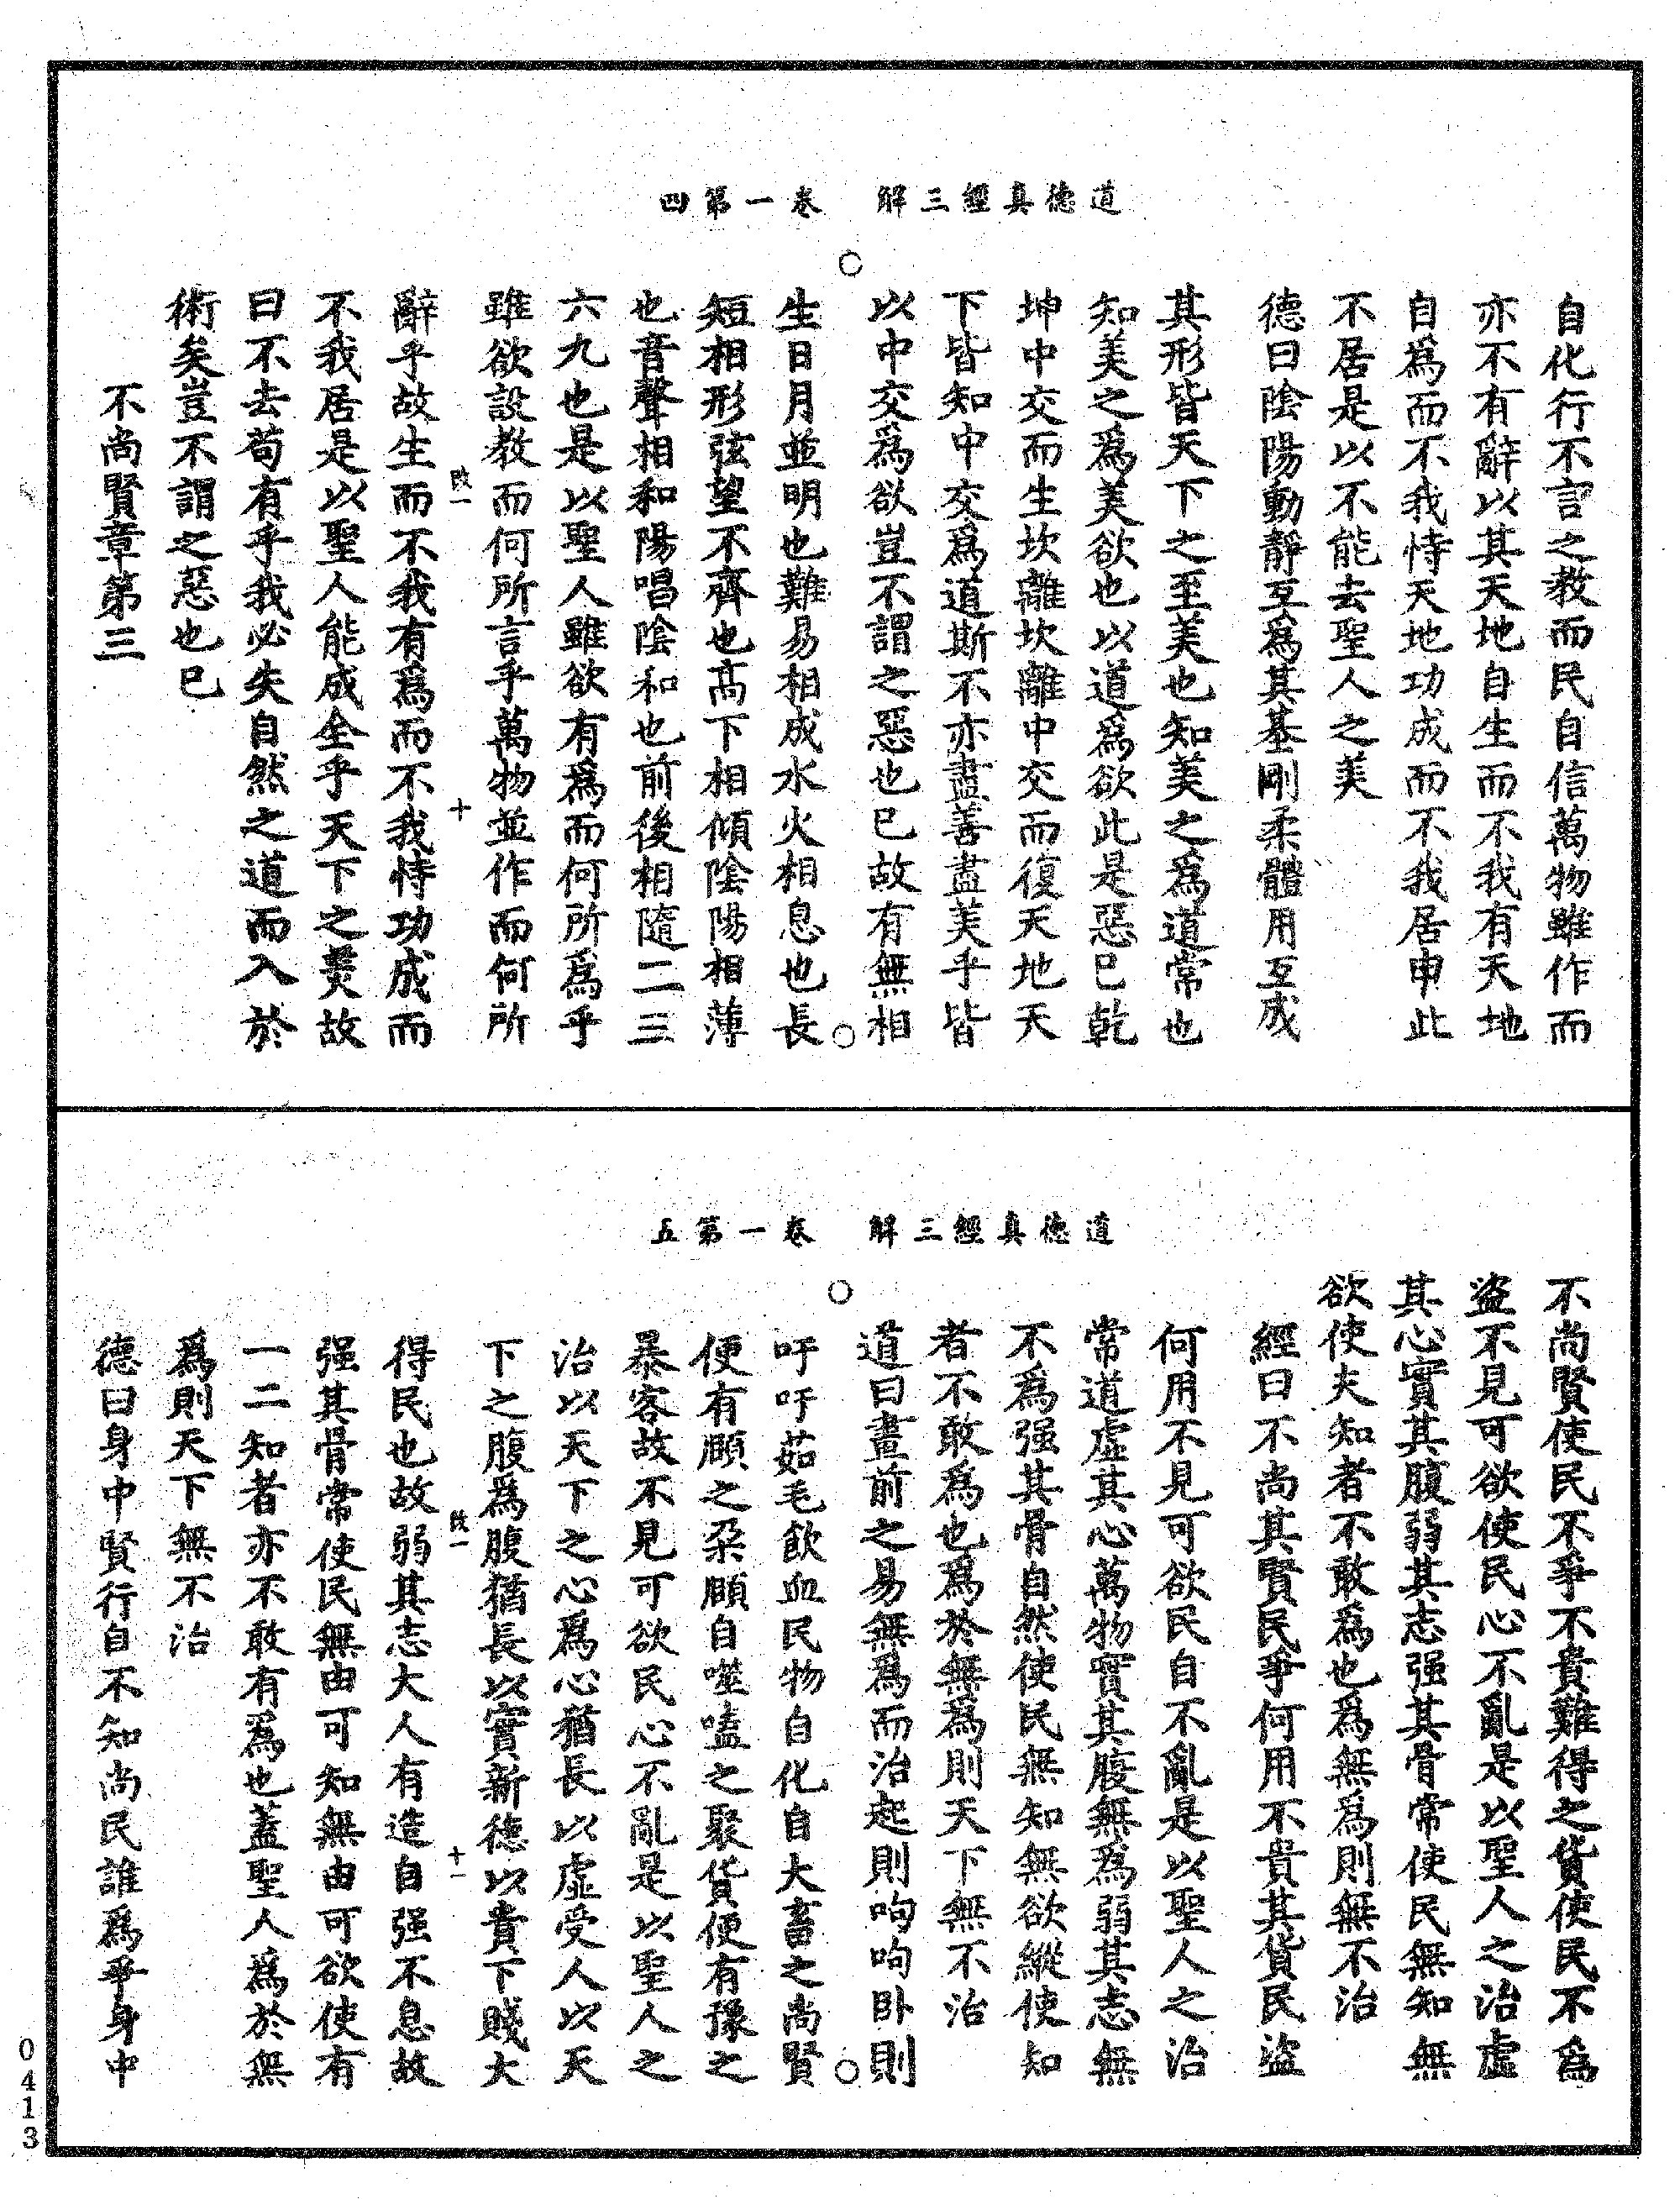 道德真經三解　卷一第四
自化行不言之教而民自信萬物雖作而
亦不有辭以其天地自生而不我有天地
自爲而不我恃天地功成而不我居申此
不居是以不能去聖人之美
德曰陰陽動靜互爲其基剛柔體用互成
其形皆天下之至美也知美之爲道常也
知美之爲美欲也以道爲欲此是惡已乾
坤中交而生坎離坎離中交而復天地天
下皆知中交爲道斯不亦盡善盡美乎皆
以中交爲欲豈不謂之惡也已故有無相
生日月並明也難易相成水火相息也長
短相形弦望不齊也高下相傾陰陽相薄
也音聲相和陽唱陰和也前後相隨二三
六九也是以聖人雖欲有爲而何所爲乎
雖欲設教而何所言乎萬物並作而何所
十
辭乎故生而不我有爲而不我恃功成而
不我居是以聖人能成全乎天下之美故
曰不去苟有乎我必失自然之道而入於
術矣豈不謂之惡也已
不尚賢章第三
道德真經三解　卷一第五
不尚賢使民不爭不貴難得之貨使民不爲
盜不見可欲使民心不亂是以聖人之治虛
其心實其腹弱其志强其骨常使民無知無
欲使夫知者不敢爲也爲無爲則無不治
經曰不尚其賢民爭何用不貴其貨民盜
何用不見可欲民自不亂是以聖人之治
常道虛其心萬物實其腹無爲弱其志無
不爲强其骨自然使民無知無欲縱使知
者不敢爲也爲於無爲則天下無不治
道曰畫前之易無爲而治起則呴呴卧則
吁吁茹毛飲血民物自化自大畜之尚賢
便有頤之朶頤自噬嗑之聚貨便有豫之
暴客故不見可欲民心不亂是以聖人之
治以天下之心爲心猶長以虛受人以天
下之腹爲腹猶長以實新德以貴下賤大
十一
得民也故弱其志大人有造自强不息故
强其骨常使民無由可知無由可欲使有
一二知者亦不敢有爲也蓋聖人爲於無
爲則天下無不治
德曰身中賢行自不知尚民誰爲爭身中
0413